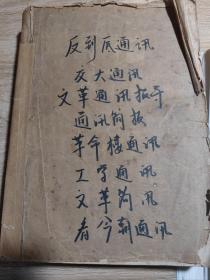 反到底通讯
交大通讯
文革通讯报导
通讯简报
革命楼通讯
工学通讯
文革简讯
看今朝通讯